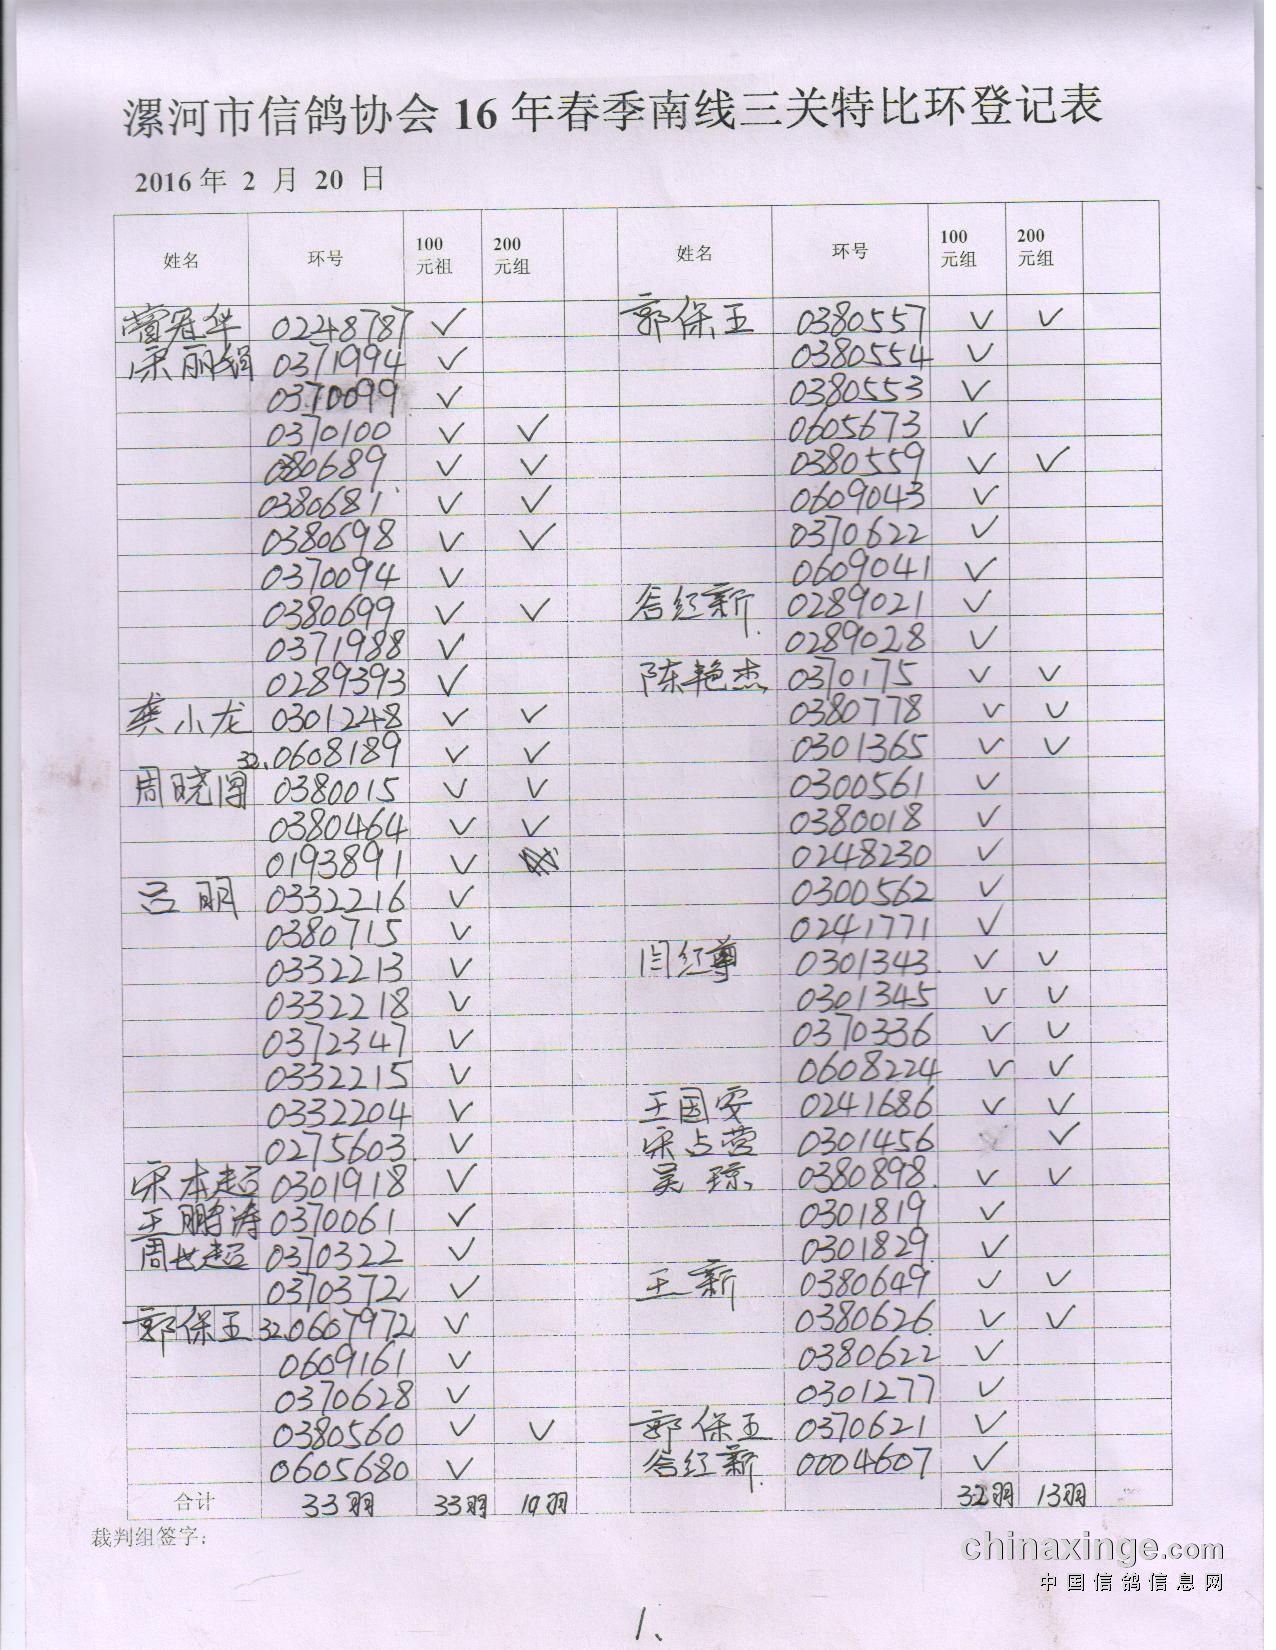 漯河市信鸽协会16年春季南线三关特比环登记表
2016年 2 月 20 日
姓名 环号 100元祖 200元组 姓名 环号 100元组 200元组
0248787 ✓ 郭保王 0380557 ✓ ✓
宋丽娟 0371994 ✓ 0380554 ✓
0370099 ✓ 0380553 ✓
0370100 ✓ ✓ 0605673 ✓
0380689 ✓ ✓ 0380559 ✓ ✓
0380681 ✓ ✓ 0609043 ✓
0380698 ✓ ✓ 0370622 ✓
0370094 ✓ 0609041 ✓
0380699 ✓ ✓ 谷红新 0289021 ✓
0371988 ✓ 0289028 ✓
0289393 ✓ 陈艳杰 0370175 ✓ ✓
龚小龙 0301248 ✓ ✓ 0380778 ✓ ✓
32.0608189 ✓ ✓ 0301365 ✓ ✓
周晓 0380015 ✓ ✓ 0300561 ✓
0380464 ✓ ✓ 0380018 ✓
0193891 ✓ 0248230 ✓
吕明 0332216 ✓ 0300562 ✓
0380715 ✓ 0241771 ✓
0332213 ✓ 闫红尊 0301343 ✓ ✓
0332218 ✓ 0301345 ✓ ✓
0372347 ✓ 0370336 ✓ ✓
0332215 ✓ 0608224 ✓ ✓
0332204 ✓ 王国安 0241686 ✓ ✓
0275603 ✓ 宋占营 0301456 ✓
宋本超 0301918 ✓ 吴琼 0380898 ✓ ✓
王鹏涛 0370061 ✓ 0301819 ✓
周世超 0370322 ✓ 0301829 ✓
0370372 ✓ 王新 0380649 ✓ ✓
郭保王 32.0607972 ✓ 0380626 ✓ ✓
0609161 ✓ 0380622 ✓
0370628 ✓ 0301277 ✓
0380560 ✓ ✓ 郭保王 0370621 ✓
0605680 ✓ 谷红新 0004607 ✓
合计 33羽 33羽 10羽 32羽 13羽
裁判组签字：
chinaxinge.com
中国信鸽信息网
1、